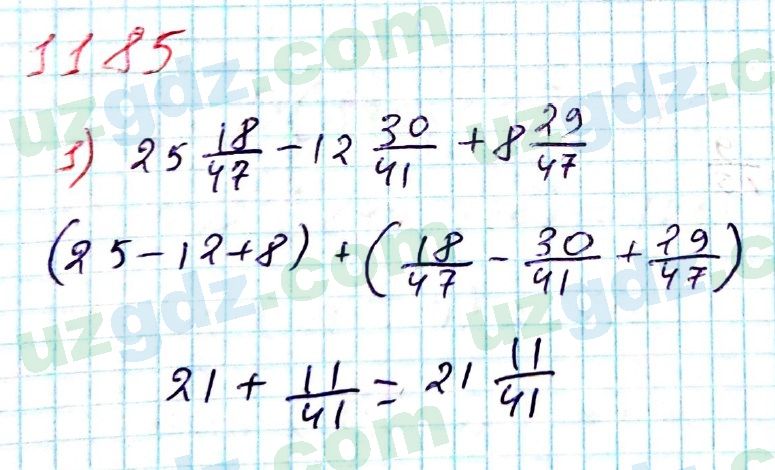 1185
1) 25 18/47 - 12 30/41 + 8 29/47
(25 - 12 + 8) + (18/47 - 30/41 + 29/47)
21 + 11/41 = 21 11/41
uzgdz.com
uzgdz.com
uzgdz.com
uzgdz.com